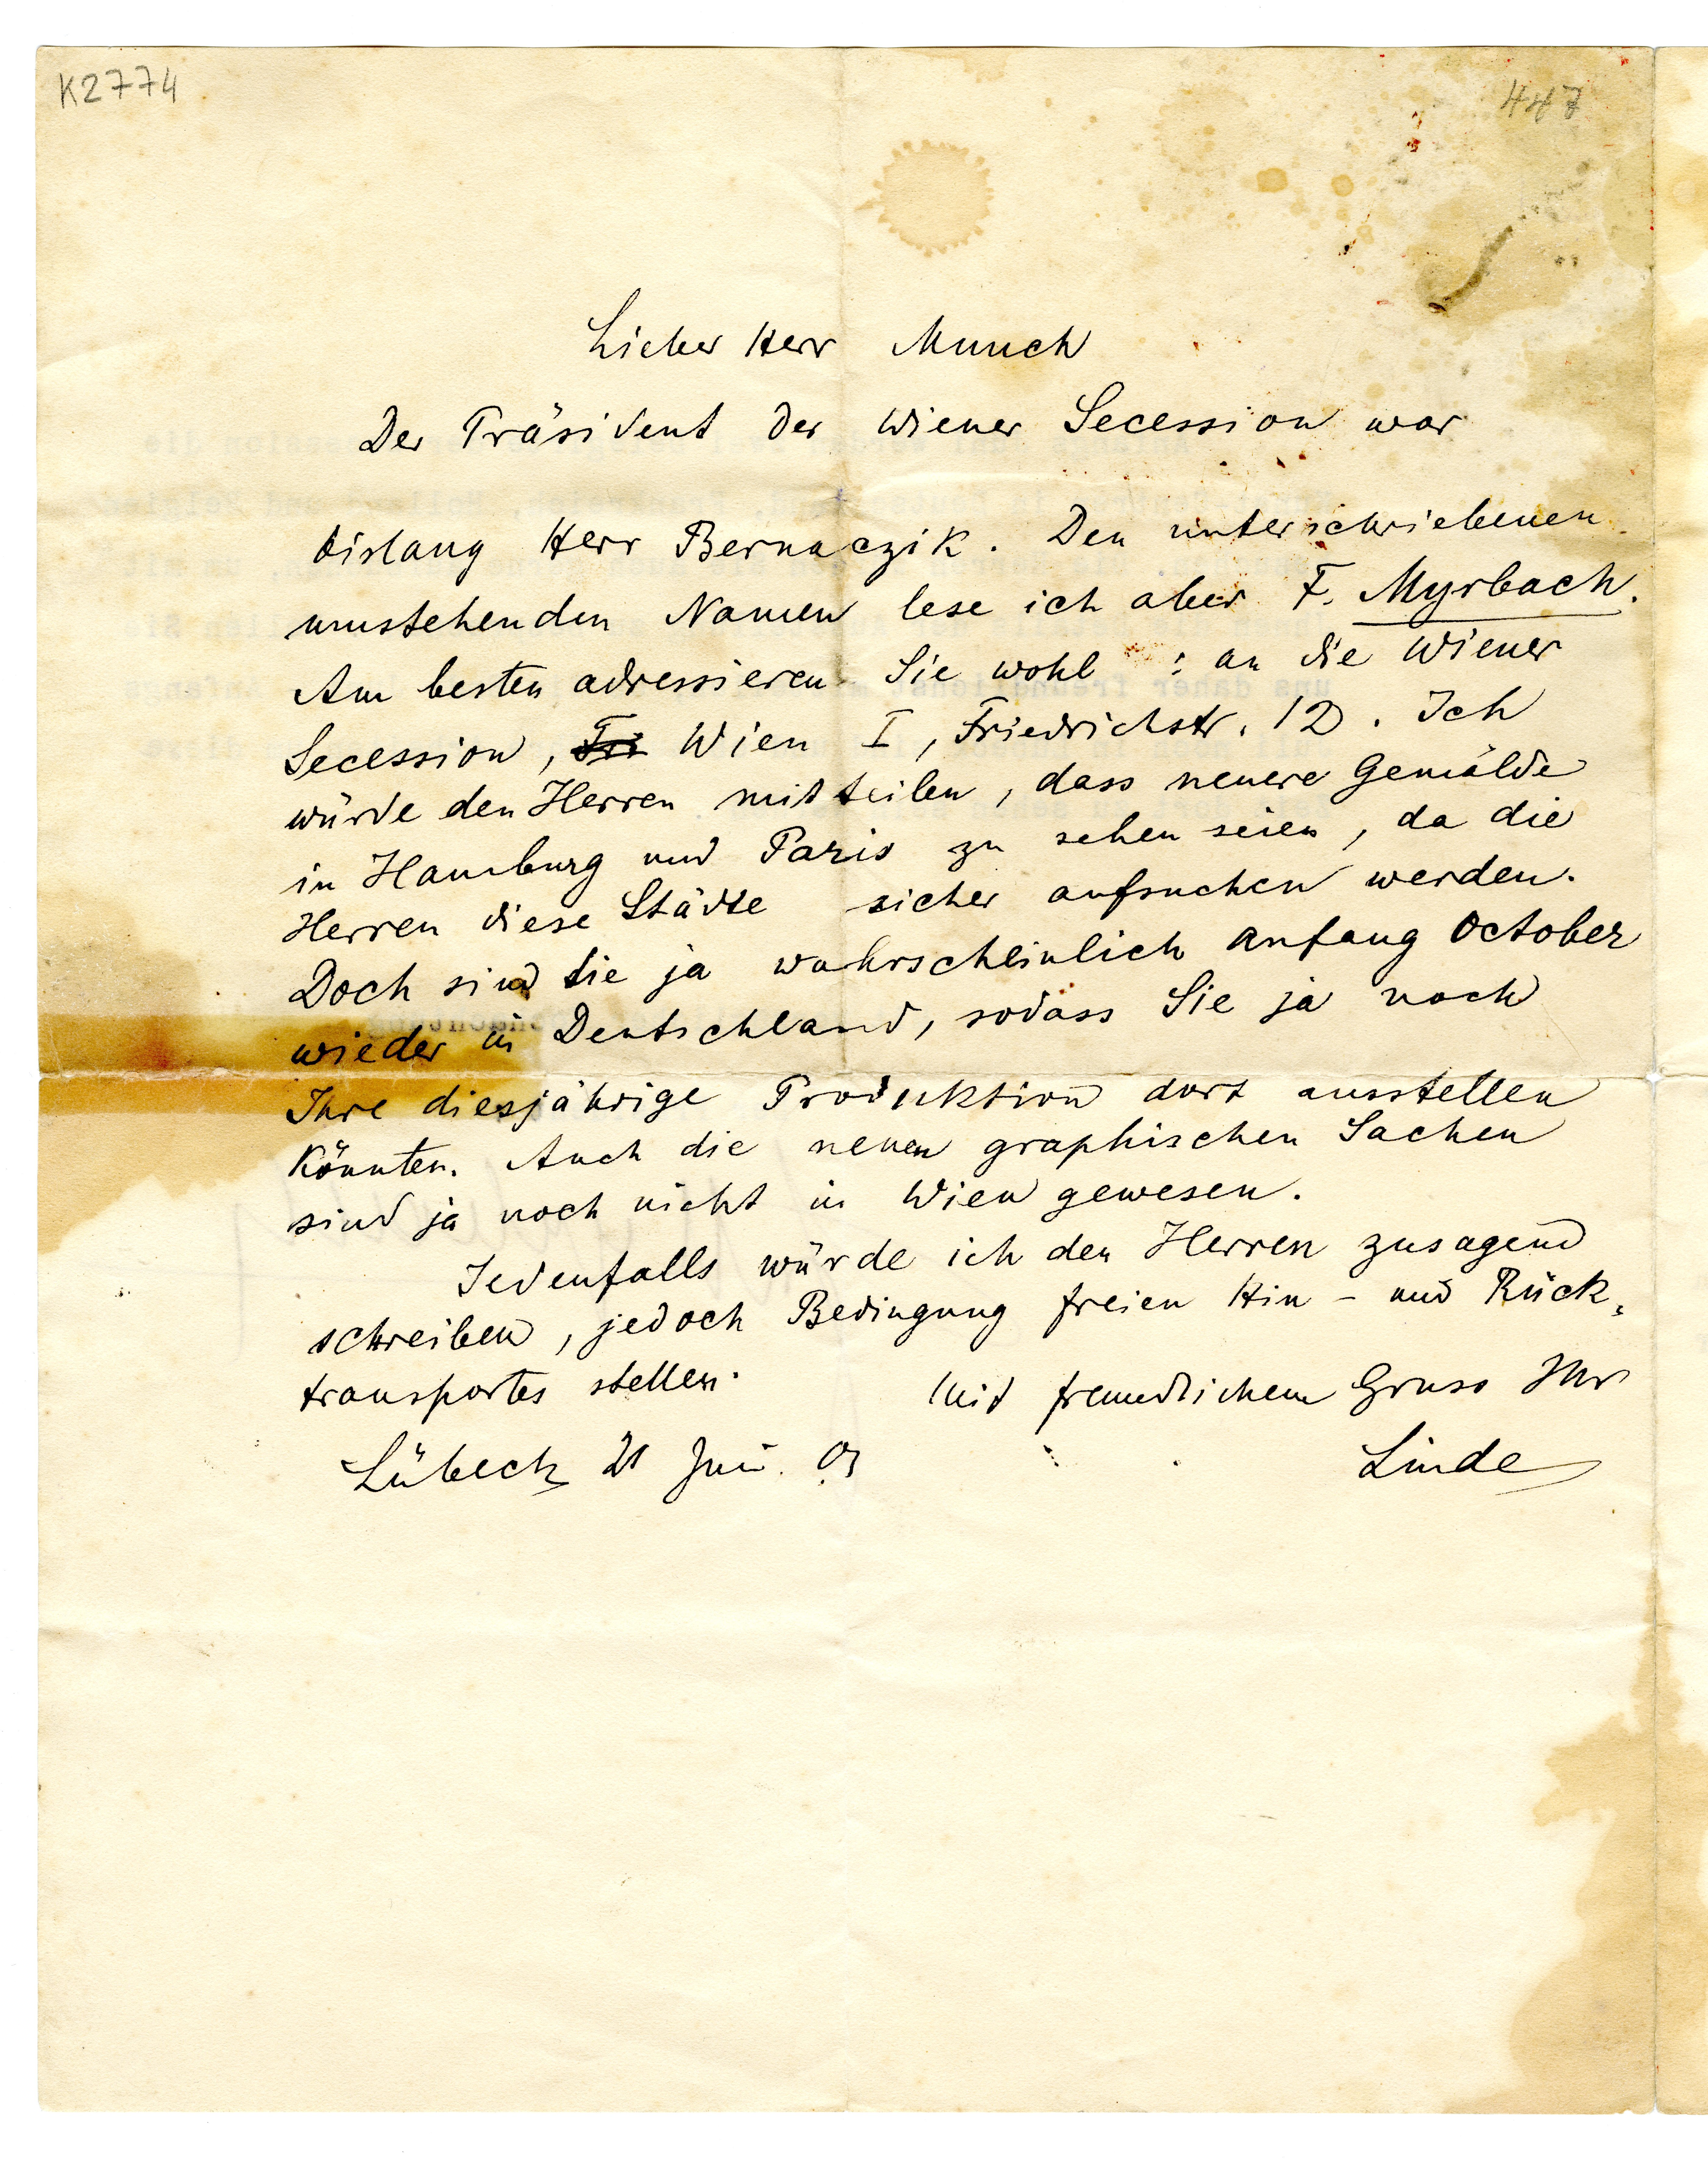 K2774
447
Lieber Herr Munch
Der Präsident der Wiener Secession war
bislang Herr Bernaczik. Den unterschriebenen
umstehenden Namen lese ich aber F. Myrbach.
Am besten adressieren Sie wohl : an die Wiener
Secession, Fri Wien I, Friedrichstr. 12. Ich
würde den Herren mitteilen, dass neuere Gemälde
in Hamburg und Paris zu sehen seien, da die
Herren diese Städte sicher aufsuchen werden.
Doch sind Sie ja wahrscheinlich anfang October
wieder in Deutschland, sodass Sie ja noch
Ihre diesjährige Produktion dort ausstellen
könnten. Auch die neuen graphischen Sachen
sind ja noch nicht in Wien gewesen.
Jedenfalls würde ich den Herren zusagend
schreiben, jedoch Bedingung freien Hin- und Rück-
transportes stellen.
Mit freundlichem Gruss Ihr
Lübeck 21 Juni. 03
Linde